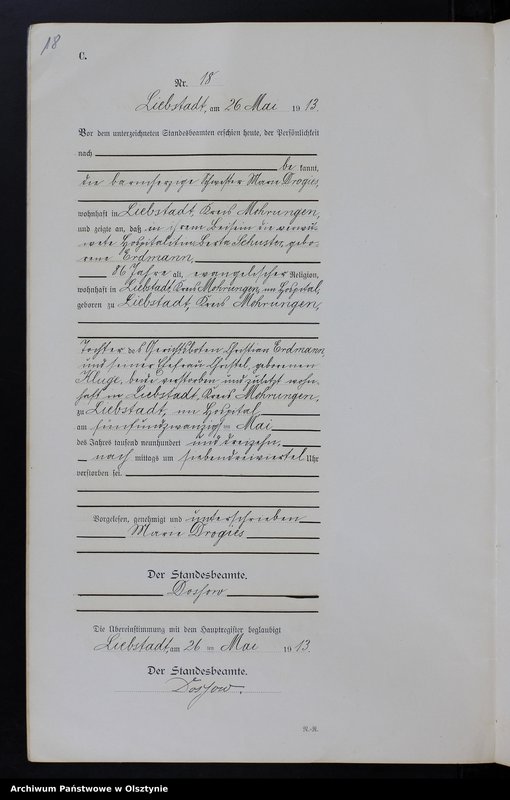 18
C.
Nr. 18
Liebstadt, am 26 Mai 1913.
Vor dem unterzeichneten Standesbeamten erschien heute, der Persönlichkeit
nach
be kannt,
die barmherzige Schwester Marie Drogies,
wohnhaft in Liebstadt, Kreis Mohrungen,
und zeigte an, daß in ihrem Beisein die verwit
wete Hospitalitin Berta Schuster, gebo
rene Erdmann,
86 Jahre alt, evangelischer Religion,
wohnhaft in Liebstadt, Kreis Mohrungen, im Hospital,
geboren zu Liebstadt, Kreis Mohrungen,
Tochter des Gerichtsboten Christian Erdmann
und seiner Ehefrau Christel, geborenen
Kluge, beide verstorben und zuletzt wohn
haft in Liebstadt, Kreis Mohrungen,
zu Liebstadt, im Hospital
am fünfundzwanzigsten Mai
des Jahres tausend neunhundert und dreizehn,
nach mittags um siebendreiviertel Uhr
verstorben sei.
Vorgelesen, genehmigt und unterschrieben
Marie Drogies
Der Standesbeamte.
Die Übereinstimmung mit dem Hauptregister beglaubigt
Liebstadt, am 26 ten Mai 1913.
Der Standesbeamte.
N.-R.
Archiwum Państwowe w Olsztynie